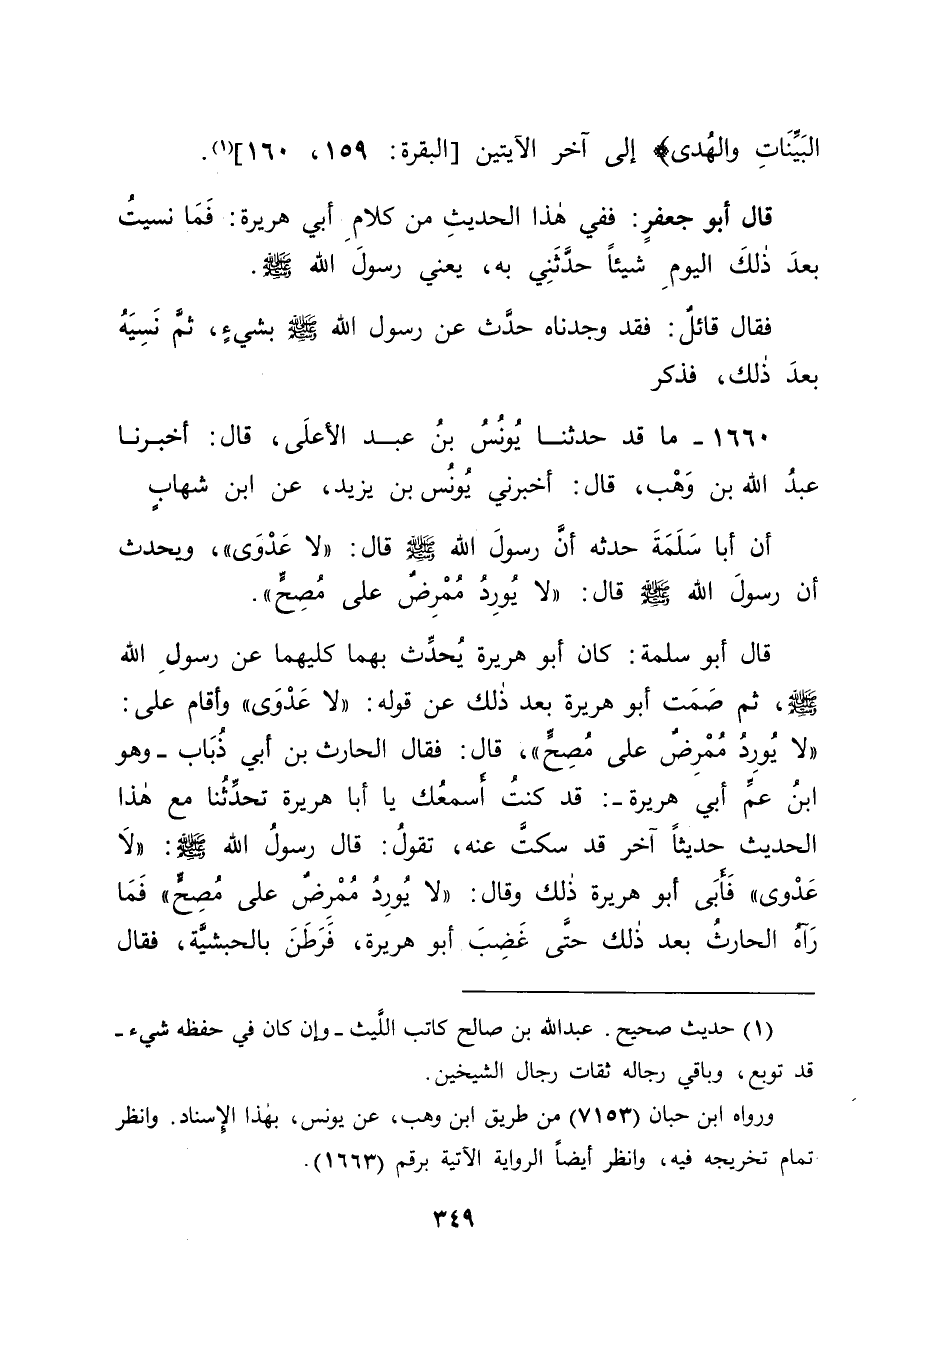 البَيِّنَاتِ والهُدى﴾ إلى آخر الآيتين [البقرة: ١٥٩، ١٦٠](١).
قال أبو جعفرٍ: ففي هٰذا الحديثِ من كلامِ أبي هريرة: فَمَا نسيتُ
بعدَ ذٰلكَ اليومِ شيئاً حدَّثَنِي به، يعني رسولَ الله ﷺ.
فقال قائلٌ: فقد وجدناه حدَّث عن رسول الله ﷺ بشيءٍ، ثمَّ نَسِيَهُ
بعدَ ذٰلك، فذكر
١٦٦٠ - ما قد حدثنا يُونُسُ بنُ عبد الأعلَى، قال: أخبرنا
عبدُ الله بن وَهْب، قال: أخبرني يُونُس بن يزيد، عن ابن شهابٍ
أن أبا سَلَمَةَ حدثه أنَّ رسولَ الله ﷺ قال: «لا عَدْوَى»، ويحدث
أن رسولَ الله ﷺ قال: «لا يُورِدُ مُمْرِضٌ على مُصِحٍّ».
قال أبو سلمة: كان أبو هريرة يُحدِّث بهما كليهما عن رسولِ الله
ﷺ، ثم صَمَت أبو هريرة بعد ذٰلك عن قوله: «لا عَدْوَى» وأقام على:
«لا يُورِدُ مُمْرِضٌ على مُصِحٍّ»، قال: فقال الحارث بن أبي ذُبَاب - وهو
ابنُ عمِّ أبي هريرة -: قد كنتُ أَسمعُك يا أبا هريرة تحدِّثُنا مع هٰذا
الحديث حديثاً آخر قد سكتَّ عنه، تقولُ: قال رسولُ الله ﷺ: «لَا
عَدْوى» فَأَبَى أبو هريرة ذٰلك وقال: «لا يُورِدُ مُمْرِضٌ على مُصِحٍّ» فَمَا
رَآهُ الحارثُ بعد ذٰلك حتَّى غَضِبَ أبو هريرة، فَرَطَنَ بالحبشيَّة، فقال
(١) حديث صحيح. عبدالله بن صالح كاتب اللَّيث - وإن كان في حفظه شيء -
قد توبع، وباقي رجاله ثقات رجال الشيخين.
ورواه ابن حبان (٧١٥٣) من طريق ابن وهب، عن يونس، بهٰذا الإِسناد. وانظر
تمام تخريجه فيه، وانظر أيضاً الرواية الآتية برقم (١٦٦٣).
٣٤٩